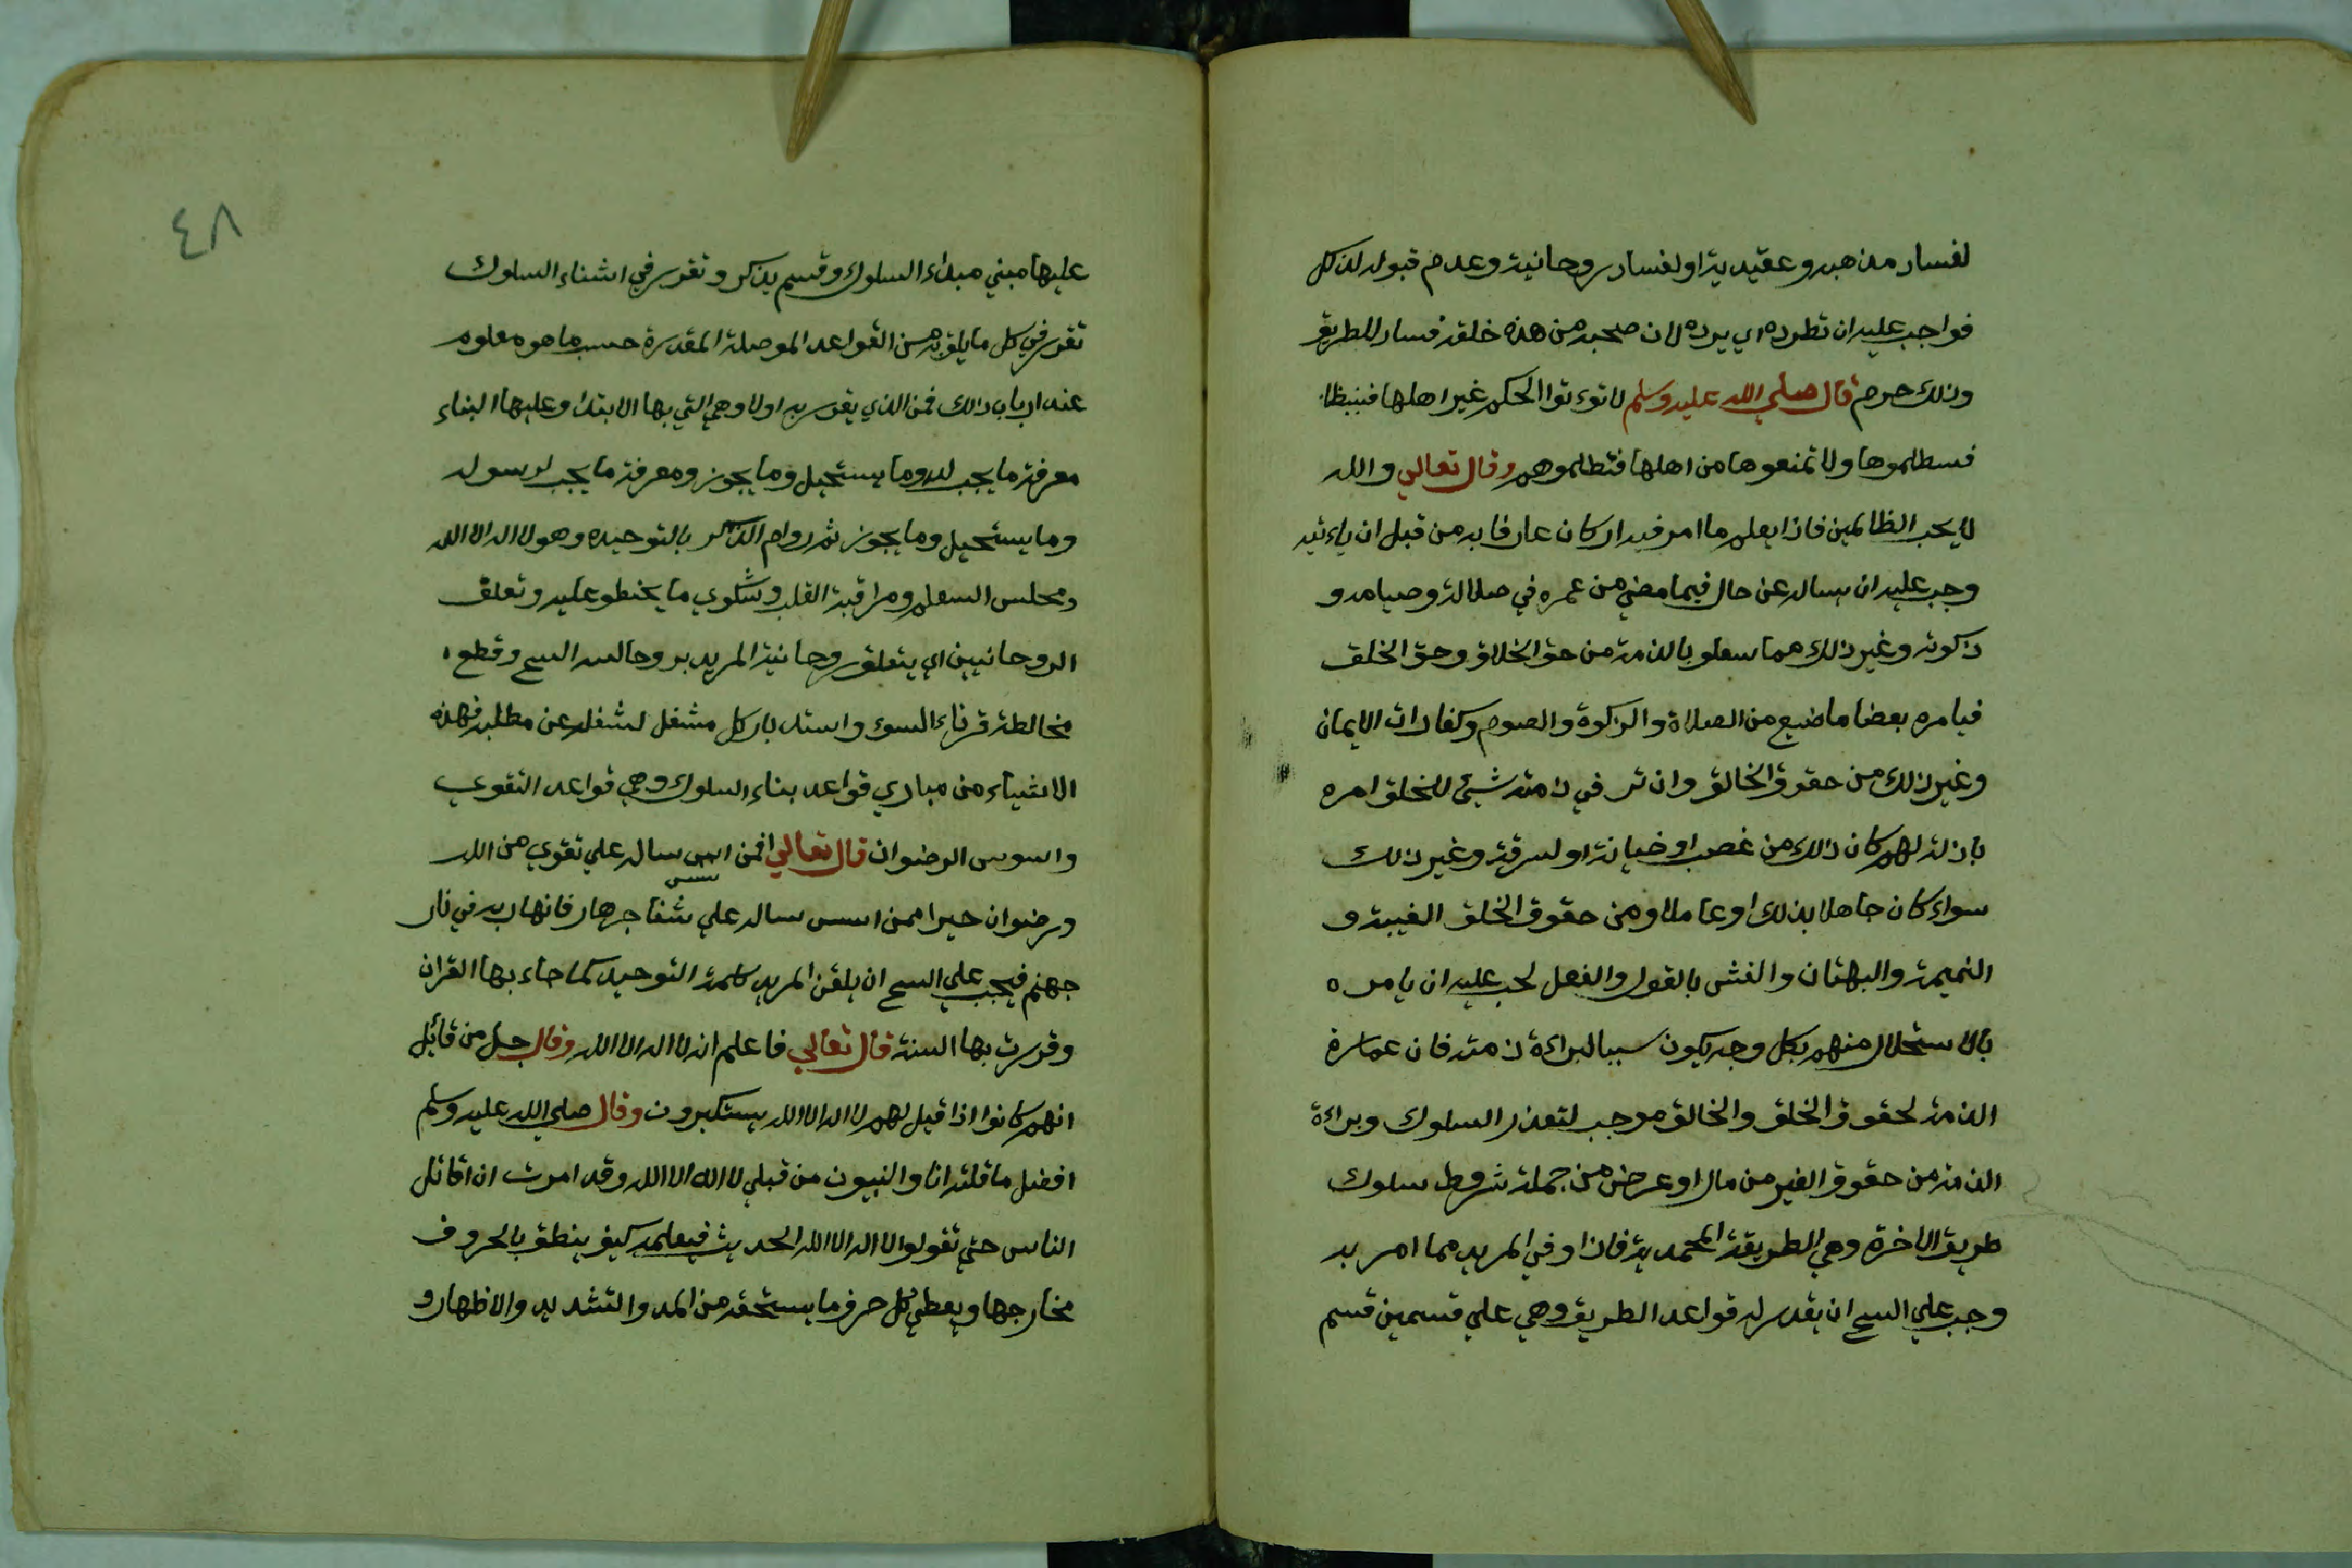 لفساد مذهبه وعقيديته او لفساد روحانيته وعدم قبوله لذكل
فواجب عليه ان تطرده اي يرده لان صحبه من هذه خلقه فساد للطريق
وذلك حرم قال صلي الله عليه وسلم لا توءتوا الحكم غير اهلها
فسطلموها ولا تمنعوها من اهلها فتطلموهم وقال تعالي والله
لا يحب الظالمين فاذا يعلم ما امر فيه ان كان عارفا به من قبل ان ياءتيه
وجب عليه ان يساله عن حال فيما مضي من عمره في صلاته وصيامه و
ذكوته وغير ذلك مما سعلو بالذمة من حق الخلاق وحق الخلق
فيامره بعضا ما ضيع من الصلاة والزكوة والصوم وكفارات الايمان
وغير ذلك من حقوق الخالق وان تر في ذمته شيئ للخلق امره
باذلة لهم كان ذلك من غصب او خيانة او لسرقة وغير ذلك
سواء كان جاهلا بذلك او عاملا ومن حقوق الخلق الغيبة و
النميمة والبهتان والغش بالقول والفعل لحب عليه ان يامره
بالاستحلال منهم بكل وجه يكون سببا لبراءة ذمته فان عمارة
الذمة لحقوق الخلق والخالق موجب لتعذر السلوك وبراءة
الذمة من حقوق الغير من مال او عرض من جملة شروط سلوك
طريق الاخرة وهي الطريقة المحمدية فاذا وفي المريد مما امر به
وجب علي السح ان يقدر له قواعد الطريق وهي علي قسمين قسم
٤٨
عليها مبني مبداء السلوك وقسم يذكر وتقرر في اشناء السلوك
تقرر في كل ما يلق به من القواعد الموصلة المقدرة حسب ما هو معلوم
عند ارباب ذلك فمن الذي يقرر به اولا وهي التي بها الابتدا وعليها البناء
معرفة ما يجب لله وما يستحيل وما يجوز ومعرفة ما يجب لرسوله
وما يستحيل وما يجوز ثم دوام الذكر بالتوحيده وهو لا اله الا الله
ومجلس السعلم ومراقبة القلب وشكوي ما يخطو عليه وتعلق
الروحانيين اي يتعلق روحانية المريد بروحالسه السح وقطع
مخالطة قرناء السوء واستدبار كل مشغل لشغله عن مطلبه فهذه
الاشياء من مبادي قواعد بناء السلوك وهي قواعد التقوي
واسوس الرضوان قال تعالي افمن اسس سساله علي تقوي من الله
ورضوان حيرا ممن اسس سساله علي شفا جرهار فانهار به في نار
جهنم فيجب علي السح ان يلقن المريد كلمة التوحيد كما جاء بها القران
وقررت بها السنة قال تعالي فاعلم انه لا اله الا الله وقال جل من قائل
انهم كانوا اذا قيل لهم لا اله الا الله يستكبرون وقال صلي الله عليه وسلم
افضل ما قلته انا والنبيون من قبلي لا اله الا الله وقد امرت ان اقاتل
الناس حتي تقولوا لا اله الا الله الحديث فيعلمه كيف ينطق بالحروف
مخارجها ويعطي كل حرف ما يستحقه من المد والتشديد والاظهار و